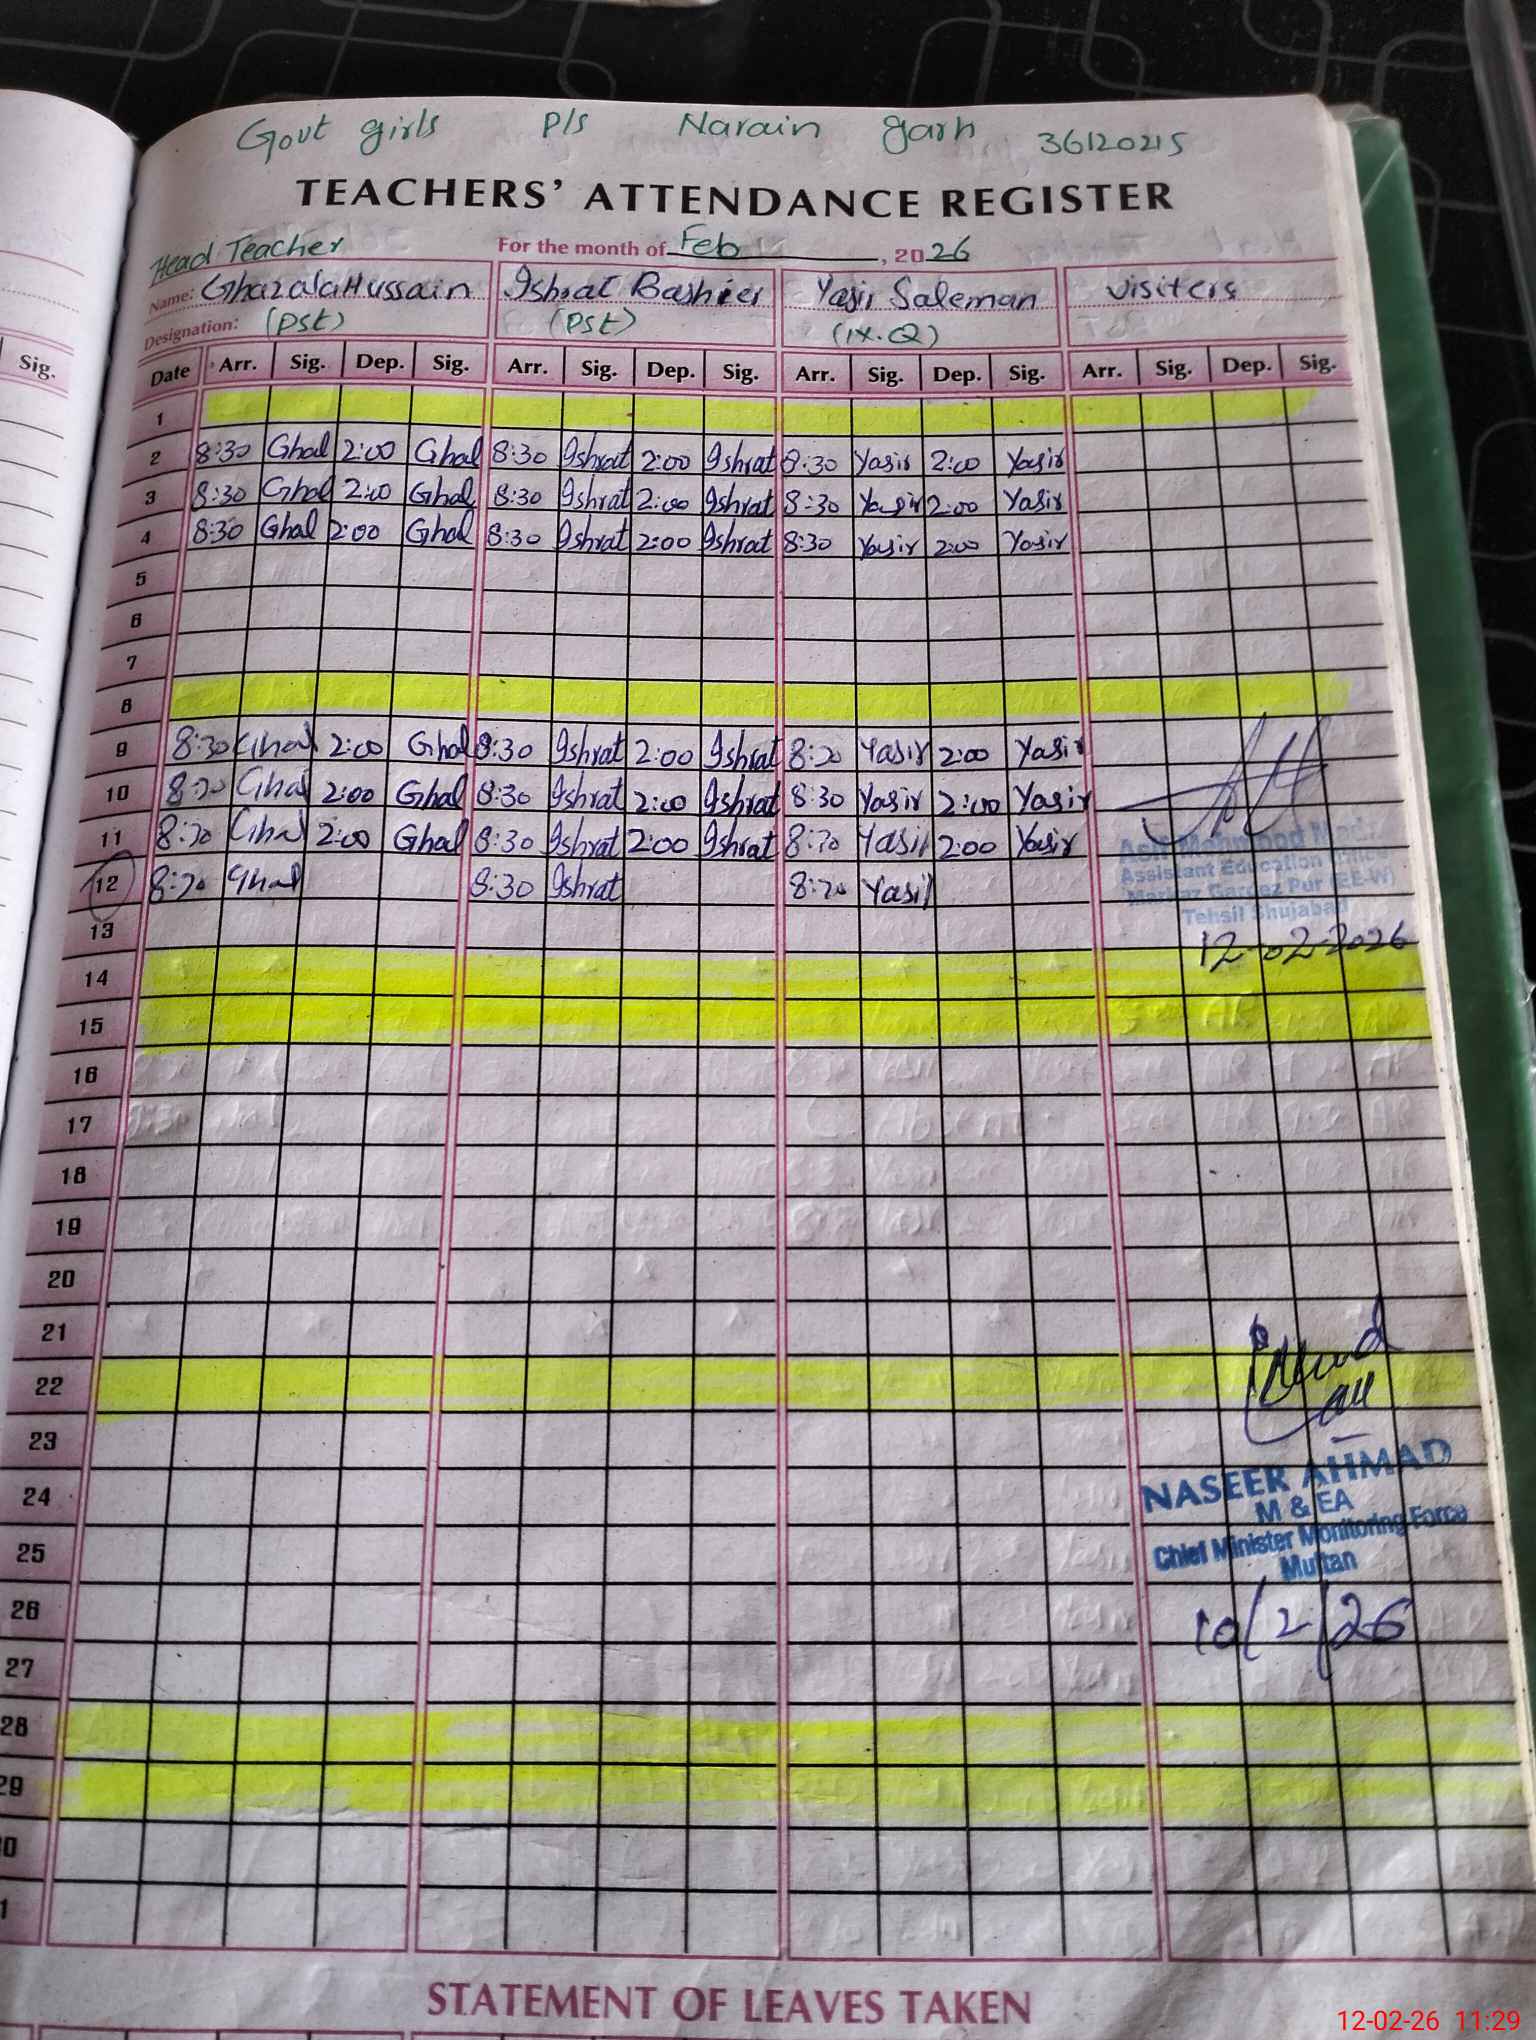 Govt girls P/s Narain garh 36120215
TEACHERS' ATTENDANCE REGISTER
Head Teacher For the month of Feb, 2026
Name: Ghazala Hussain Ishrat Bashier Yasir Saleman visiters
Designation: (PSt) (PSt) (IX.Q)
Sig.
Date Arr. Sig. Dep. Sig. Arr. Sig. Dep. Sig. Arr. Sig. Dep. Sig. Arr. Sig. Dep. Sig.
1
2 8:30 Ghal 2:00 Ghal 8:30 Ishrat 2:00 Ishrat 8:30 Yasir 2:00 Yasir
3 8:30 Ghal 2:00 Ghal 8:30 Ishrat 2:00 Ishrat 8:30 Yasir 2:00 Yasir
4 8:30 Ghal 2:00 Ghal 8:30 Ishrat 2:00 Ishrat 8:30 Yasir 2:00 Yasir
5
6
7
8
9 8:30 Ghal 2:00 Ghal 8:30 Ishrat 2:00 Ishrat 8:30 Yasir 2:00 Yasir
10 8:30 Ghal 2:00 Ghal 8:30 Ishrat 2:00 Ishrat 8:30 Yasir 2:00 Yasir
11 8:30 Ghal 2:00 Ghal 8:30 Ishrat 2:00 Ishrat 8:30 Yasir 2:00 Yasir
12 8:30 Ghal 8:30 Ishrat 8:30 Yasir
Asif Mahmood
Assistant Education Officer
Markaz Gardez Pur (EE-W)
Tehsil Shujabad
12-02-2026
13
14
15
16
17
18
19
20
21
22
23
24
25
26
27
28
29
0
1
NASEER AHMAD
M & EA
Chief Minister Monitoring Force
Multan
10/2/26
STATEMENT OF LEAVES TAKEN
12-02-26 11:29